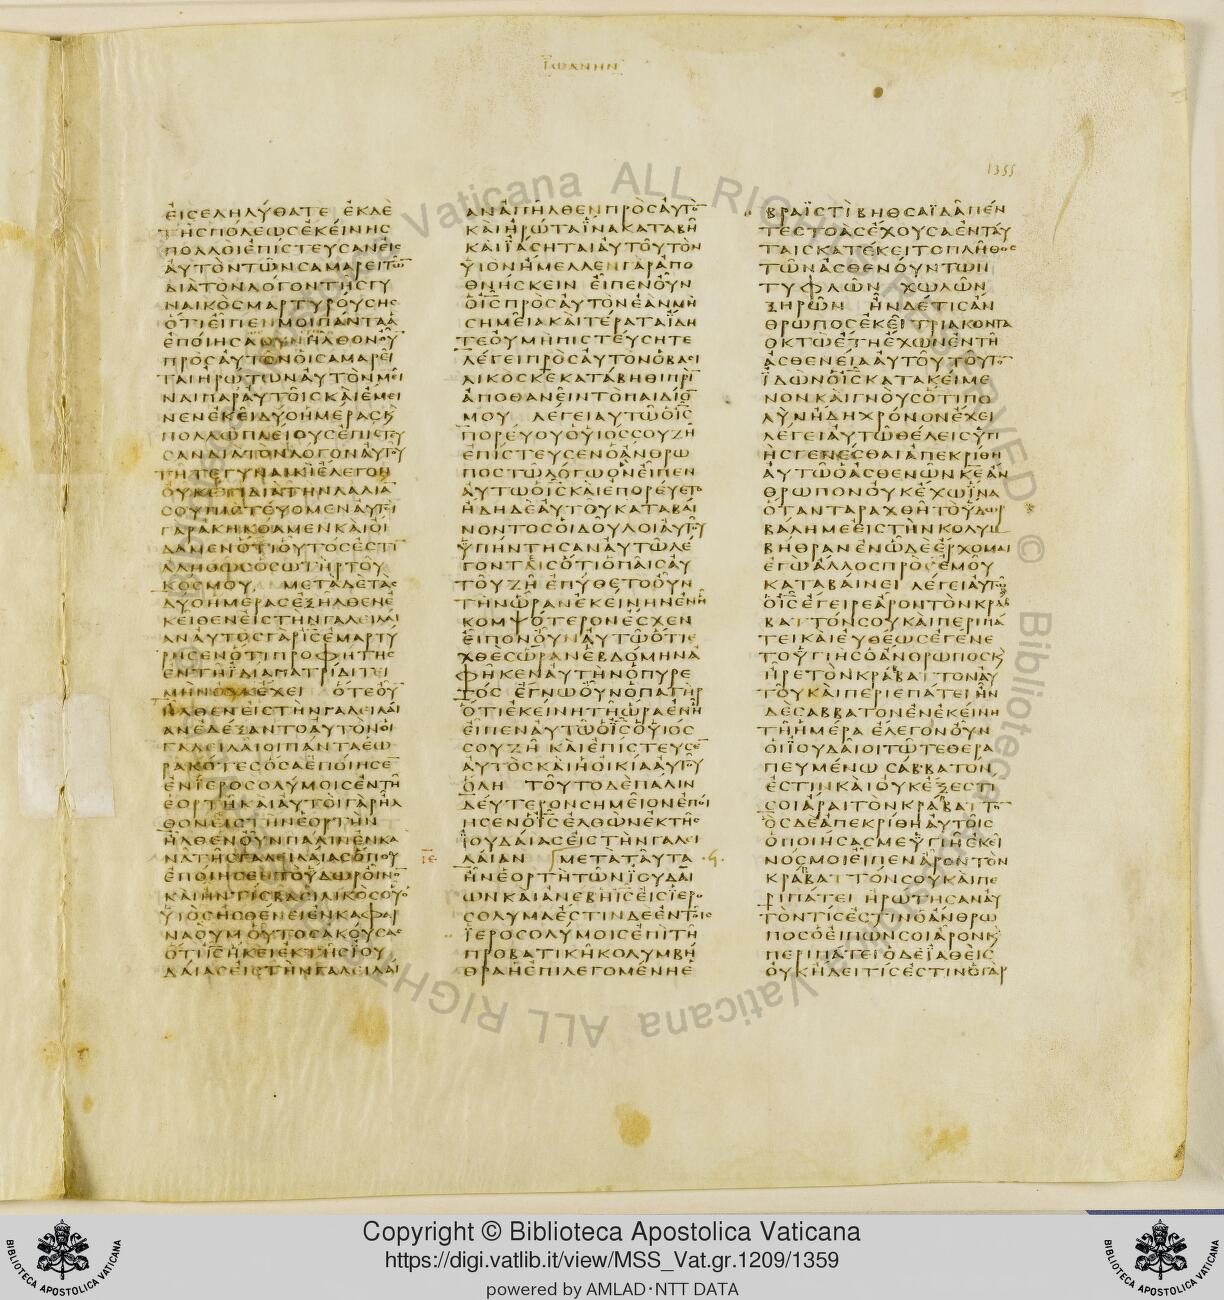 ΙΩΑΝΗΝ
1355
ΕΙΣΕΛΗΛΥΘΑΤΕ ΕΚ ΔΕ
ΤΗΣ ΠΟΛΕΩΣ ΕΚΕΙΝΗΣ
ΠΟΛΛΟΙ ΕΠΙΣΤΕΥΣΑΝ ΕΙΣ
ΑΥΤΟΝ ΤΩΝ ΣΑΜΑΡΕΙΤΩ
ΔΙΑ ΤΟΝ ΛΟΓΟΝ ΤΗΣ ΓΥ
ΝΑΙΚΟΣ ΜΑΡΤΥΡΟΥΣΗΣ
ΟΤΙ ΕΙΠΕΝ ΜΟΙ ΠΑΝΤΑ Α
ΕΠΟΙΗΣΑ ΩΣ ΟΥΝ ΗΛΘΟΝ
ΠΡΟΣ ΑΥΤΟΝ ΟΙ ΣΑΜΑΡΕΙ
ΤΑΙ ΗΡΩΤΩΝ ΑΥΤΟΝ ΜΕΙ
ΝΑΙ ΠΑΡ ΑΥΤΟΙΣ ΚΑΙ ΕΜΕΙ
ΝΕΝ ΕΚΕΙ ΔΥΟ ΗΜΕΡΑΣ Κ
ΠΟΛΛΩ ΠΛΕΙΟΥΣ ΕΠΙΣΤΕΥ
ΣΑΝ ΔΙΑ ΤΟΝ ΛΟΓΟΝ ΑΥΤΟΥ
ΤΗ ΤΕ ΓΥΝΑΙΚΙ ΕΛΕΓΟΝ
ΟΥΚΕΤΙ ΔΙΑ ΤΗΝ ΛΑΛΙΑ
ΣΟΥ ΠΙΣΤΕΥΟΜΕΝ ΑΥΤΟΙ
ΓΑΡ ΑΚΗΚΟΑΜΕΝ ΚΑΙ ΟΙ
ΔΑΜΕΝ ΟΤΙ ΟΥΤΟΣ ΕΣΤΙ
ΑΛΗΘΩΣ Ο ΣΩΤΗΡ ΤΟΥ
ΚΟΣΜΟΥ ΜΕΤΑ ΔΕ ΤΑΣ
ΔΥΟ ΗΜΕΡΑΣ ΕΞΗΛΘΕΝ Ε
ΚΕΙΘΕΝ ΕΙΣ ΤΗΝ ΓΑΛΕΙΛΑΙ
ΑΝ ΑΥΤΟΣ ΓΑΡ ΙΣ ΕΜΑΡΤΥ
ΡΗΣΕΝ ΟΤΙ ΠΡΟΦΗΤΗΣ
ΕΝ ΤΗ ΙΔΙΑ ΠΑΤΡΙΔΙ ΤΕΙ
ΜΗΝ ΟΥΚ ΕΧΕΙ ΟΤΕ ΟΥ
ΗΛΘΕΝ ΕΙΣ ΤΗΝ ΓΑΛΕΙΛΑΙ
ΑΝ ΕΔΕΞΑΝΤΟ ΑΥΤΟΝ ΟΙ
ΓΑΛΕΙΛΑΙΟΙ ΠΑΝΤΑ ΕΩ
ΡΑΚΟΤΕΣ ΟΣΑ ΕΠΟΙΗΣΕ
ΕΝ ΙΕΡΟΣΟΛΥΜΟΙΣ ΕΝ ΤΗ
ΕΟΡΤΗ ΚΑΙ ΑΥΤΟΙ ΓΑΡ ΗΛ
ΘΟΝ ΕΙΣ ΤΗΝ ΕΟΡΤΗΝ
ΗΛΘΕΝ ΟΥΝ ΠΑΛΙΝ ΕΝ ΚΑ
ΝΑ ΤΗΣ ΓΑΛΕΙΛΑΙΑΣ ΟΠΟΥ
ΕΠΟΙΗΣΕΝ ΤΟ ΥΔΩΡ ΟΙΝΟ
ΚΑΙ ΗΝ ΤΙΣ ΒΑΣΙΛΙΚΟΣ ΟΥ Ο
ΥΙΟΣ ΗΣΘΕΝΕΙ ΕΝ ΚΑΦΑΡ
ΝΑΟΥΜ ΟΥΤΟΣ ΑΚΟΥΣΑΣ
ΟΤΙ ΙΣ ΗΚΕΙ ΕΚ ΤΗΣ ΙΟΥ
ΔΑΙΑΣ ΕΙΣ ΤΗΝ ΓΑΛΕΙΛΑΙ
ΑΝ ΑΠΗΛΘΕΝ ΠΡΟΣ ΑΥΤΟ
ΚΑΙ ΗΡΩΤΑ ΙΝΑ ΚΑΤΑΒΗ
ΚΑΙ ΙΑΣΗΤΑΙ ΑΥΤΟΥ ΤΟΝ
ΥΙΟΝ ΗΜΕΛΛΕΝ ΓΑΡ ΑΠΟ
ΘΝΗΣΚΕΙΝ ΕΙΠΕΝ ΟΥΝ
Ο ΙΣ ΠΡΟΣ ΑΥΤΟΝ ΕΑΝ ΜΗ
ΣΗΜΕΙΑ ΚΑΙ ΤΕΡΑΤΑ ΙΔΗ
ΤΕ ΟΥ ΜΗ ΠΙΣΤΕΥΣΗΤΕ
ΛΕΓΕΙ ΠΡΟΣ ΑΥΤΟΝ Ο ΒΑΣΙ
ΛΙΚΟΣ ΚΕ ΚΑΤΑΒΗΘΙ ΠΡΙ
ΑΠΟΘΑΝΕΙΝ ΤΟ ΠΑΙΔΙΟ
ΜΟΥ ΛΕΓΕΙ ΑΥΤΩ Ο ΙΣ
ΠΟΡΕΥΟΥ Ο ΥΙΟΣ ΣΟΥ ΖΗ
ΕΠΙΣΤΕΥΣΕΝ Ο ΑΝΘΡΩ
ΠΟΣ ΤΩ ΛΟΓΩ ΟΝ ΕΙΠΕΝ
ΑΥΤΩ Ο ΙΣ ΚΑΙ ΕΠΟΡΕΥΕΤΟ
ΗΔΗ ΔΕ ΑΥΤΟΥ ΚΑΤΑΒΑΙ
ΝΟΝΤΟΣ ΟΙ ΔΟΥΛΟΙ ΑΥΤΟΥ
ΥΠΗΝΤΗΣΑΝ ΑΥΤΩ ΛΕ
ΓΟΝΤΑΙΣ ΟΤΙ Ο ΠΑΙΣ ΑΥ
ΤΟΥ ΖΗ ΕΠΥΘΕΤΟ ΟΥΝ
ΤΗΝ ΩΡΑΝ ΕΚΕΙΝΗΝ ΕΝ Η
ΚΟΜΨΟΤΕΡΟΝ ΕΣΧΕΝ
ΕΙΠΟΝ ΟΥΝ ΑΥΤΩ ΟΤΙ Ε
ΧΘΕΣ ΩΡΑΝ ΕΒΔΟΜΗΝ Α
ΦΗΚΕΝ ΑΥΤΗΝ Ο ΠΥΡΕ
ΤΟΣ ΕΓΝΩ ΟΥΝ Ο ΠΑΤΗΡ
ΟΤΙ ΕΚΕΙΝΗ ΤΗ ΩΡΑ ΕΝ Η
ΕΙΠΕΝ ΑΥΤΩ Ο ΙΣ Ο ΥΙΟΣ
ΣΟΥ ΖΗ ΚΑΙ ΕΠΙΣΤΕΥΣΕ
ΑΥΤΟΣ ΚΑΙ Η ΟΙΚΙΑ ΑΥΤΟΥ
ΟΛΗ ΤΟΥΤΟ ΔΕ ΠΑΛΙΝ
ΔΕΥΤΕΡΟΝ ΣΗΜΕΙΟΝ ΕΠΟΙ
ΗΣΕΝ Ο ΙΣ ΕΛΘΩΝ ΕΚ ΤΗΣ
ΙΟΥΔΑΙΑΣ ΕΙΣ ΤΗΝ ΓΑΛΕΙ
ΙΕ ΛΑΙΑΝ ΜΕΤΑ ΤΑΥΤΑ
ΗΝ ΕΟΡΤΗ ΤΩΝ ΙΟΥΔΑΙ
ΩΝ ΚΑΙ ΑΝΕΒΗ ΙΣ ΕΙΣ ΙΕΡΟ
ΣΟΛΥΜΑ ΕΣΤΙΝ ΔΕ ΕΝ ΤΟΙΣ
ΙΕΡΟΣΟΛΥΜΟΙΣ ΕΠΙ ΤΗ
ΠΡΟΒΑΤΙΚΗ ΚΟΛΥΜΒΗ
ΘΡΑ Η ΕΠΙΛΕΓΟΜΕΝΗ Ε
ΒΡΑΙΣΤΙ ΒΗΘΣΑΙΔΑ ΠΕΝ
ΤΕ ΣΤΟΑΣ ΕΧΟΥΣΑ ΕΝ ΤΑΥ
ΤΑΙΣ ΚΑΤΕΚΕΙΤΟ ΠΛΗΘΟΣ
ΤΩΝ ΑΣΘΕΝΟΥΝΤΩΝ
ΤΥΦΛΩΝ ΧΩΛΩΝ
ΞΗΡΩΝ ΗΝ ΔΕ ΤΙΣ ΑΝ
ΘΡΩΠΟΣ ΕΚΕΙ ΤΡΙΑΚΟΝΤΑ
ΟΚΤΩ ΕΤΗ ΕΧΩΝ ΕΝ ΤΗ
ΑΣΘΕΝΕΙΑ ΑΥΤΟΥ ΤΟΥΤΟ
ΙΔΩΝ Ο ΙΣ ΚΑΤΑΚΕΙΜΕ
ΝΟΝ ΚΑΙ ΓΝΟΥΣ ΟΤΙ ΠΟ
ΛΥΝ ΗΔΗ ΧΡΟΝΟΝ ΕΧΕΙ
ΛΕΓΕΙ ΑΥΤΩ ΘΕΛΕΙΣ ΥΓΙ
ΗΣ ΓΕΝΕΣΘΑΙ ΑΠΕΚΡΙΘΗ
ΑΥΤΩ Ο ΑΣΘΕΝΩΝ ΚΕ ΑΝ
ΘΡΩΠΟΝ ΟΥΚ ΕΧΩ ΙΝΑ
ΟΤΑΝ ΤΑΡΑΧΘΗ ΤΟ ΥΔΩΡ
ΒΑΛΗ ΜΕ ΕΙΣ ΤΗΝ ΚΟΛΥΜ
ΒΗΘΡΑΝ ΕΝ Ω ΔΕ ΕΡΧΟΜΑΙ
ΕΓΩ ΑΛΛΟΣ ΠΡΟ ΕΜΟΥ
ΚΑΤΑΒΑΙΝΕΙ ΛΕΓΕΙ ΑΥΤΩ
Ο ΙΣ ΕΓΕΙΡΕ ΑΡΟΝ ΤΟΝ ΚΡΑ
ΒΑΤΤΟΝ ΣΟΥ ΚΑΙ ΠΕΡΙΠΑ
ΤΕΙ ΚΑΙ ΕΥΘΕΩΣ ΕΓΕΝΕ
ΤΟ ΥΓΙΗΣ Ο ΑΝΘΡΩΠΟΣ Κ
ΗΡΕ ΤΟΝ ΚΡΑΒΑΤΤΟΝ ΑΥ
ΤΟΥ ΚΑΙ ΠΕΡΙΕΠΑΤΕΙ ΗΝ
ΔΕ ΣΑΒΒΑΤΟΝ ΕΝ ΕΚΕΙΝΗ
ΤΗ ΗΜΕΡΑ ΕΛΕΓΟΝ ΟΥΝ
ΟΙ ΙΟΥΔΑΙΟΙ ΤΩ ΤΕΘΕΡΑ
ΠΕΥΜΕΝΩ ΣΑΒΒΑΤΟΝ
ΕΣΤΙΝ ΚΑΙ ΟΥΚ ΕΞΕΣΤΙ
ΣΟΙ ΑΡΑΙ ΤΟΝ ΚΡΑΒΑΤΤΟ
ΟΣ ΔΕ ΑΠΕΚΡΙΘΗ ΑΥΤΟΙΣ
Ο ΠΟΙΗΣΑΣ ΜΕ ΥΓΙΗ ΕΚΕΙ
ΝΟΣ ΜΟΙ ΕΙΠΕΝ ΑΡΟΝ ΤΟΝ
ΚΡΑΒΑΤΤΟΝ ΣΟΥ ΚΑΙ ΠΕ
ΡΙΠΑΤΕΙ ΗΡΩΤΗΣΑΝ ΑΥ
ΤΟΝ ΤΙΣ ΕΣΤΙΝ Ο ΑΝΘΡΩ
ΠΟΣ Ο ΕΙΠΩΝ ΣΟΙ ΑΡΟΝ Κ
ΠΕΡΙΠΑΤΕΙ Ο ΔΕ ΙΑΘΕΙΣ
ΟΥΚ ΗΔΕΙ ΤΙΣ ΕΣΤΙΝ Ο ΓΑΡ
Copyright © Biblioteca Apostolica Vaticana
https://digi.vatlib.it/view/MSS_Vat.gr.1209/1359
powered by AMLAD·NTT DATA